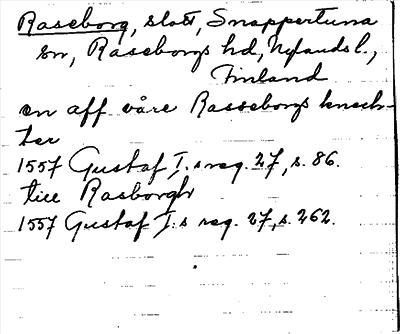 Raseborg, slott, Snappertuna
sn, Raseborgs hd, Nylands l.,
Finland
en aff våre Rasseborgs knech-
ter
1557 Gustaf I.s reg. 27, s. 86.
till Rasborgh
1557 Gustaf I.s reg. 27, s. 262.